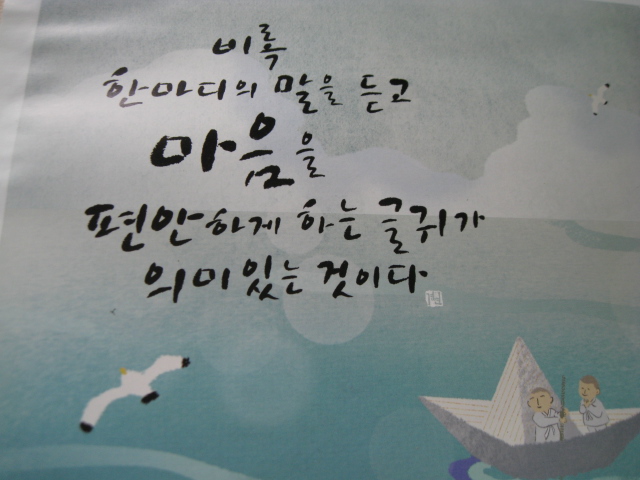 비록
한마디의 말을 듣고
마음을
편안하게 하는 글귀가
의미있는 것이다